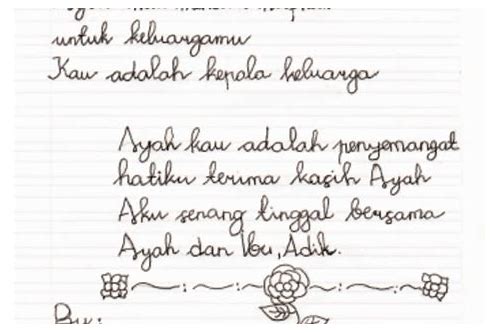 untuk keluargamu
Kau adalah kepala keluarga
Ayah kau adalah penyemangat
hatiku terima kasih Ayah
Aku senang tinggal bersama
Ayah dan Ibu, Adik.
By: